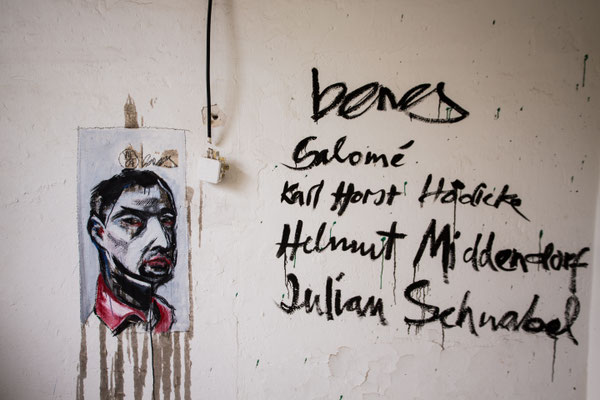 benes
Salomé
Karl Horst Hödicke
Helmut Middendorf
Julian Schnabel